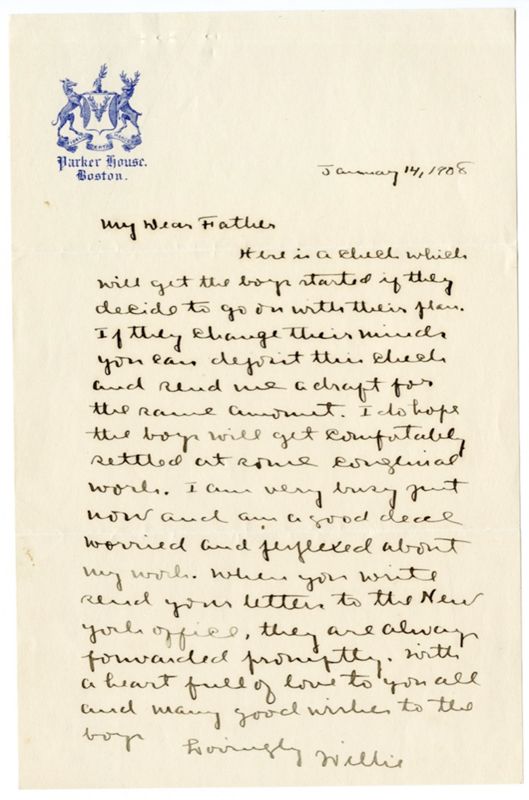 Parker House.
Boston.
January 14, 1908
My Dear Father
Here is a check which
will get the boys started if they
decide to go on with their plan.
If they change their minds
you can deposit this check
and send me a draft for
the same amount. I do hope
the boys will get comfortably
settled at some congenial
work. I am very busy just
now and am a good deal
worried and perplexed about
my work. When you write
send your letters to the New
York office, they are always
forwarded promptly. With
a heart full of love to you all
and many good wishes to the
boys
Lovingly Willie